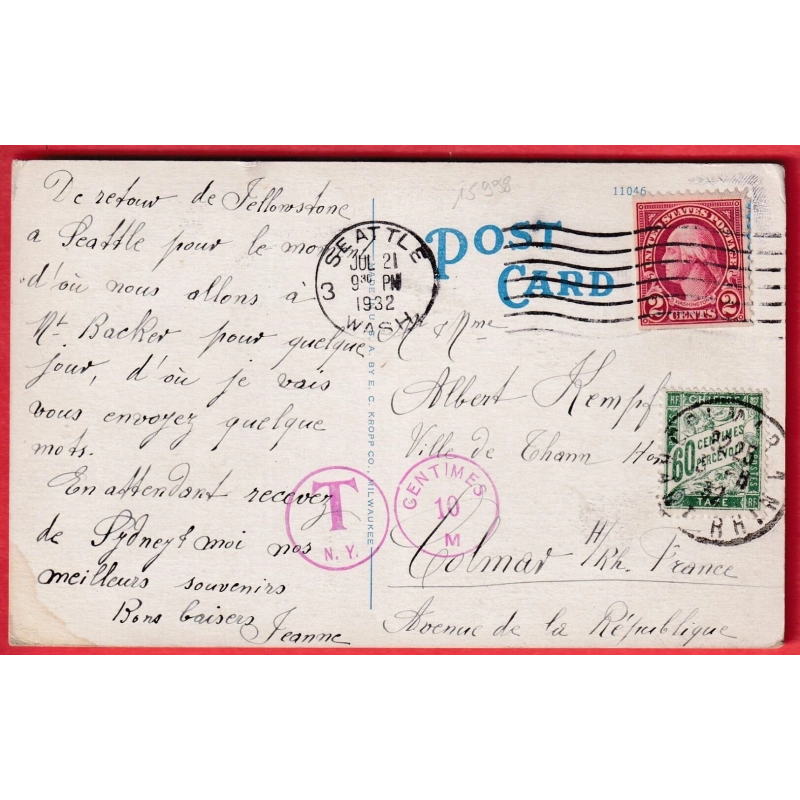 De retour de Jellowstone
a Seattle pour le moment
d'où nous allons à
Mt. Backer pour quelque
jour, d'où je vais
vous envoyez quelque
mots.
En attendant recevez
de Sydney & moi nos
meilleurs souvenirs
Bons baisers Jeanne
T
N. Y.
CENTIMES
10
M
SEATTLE
3
JUL 21
9 30 PM
1932
WASH.
BY E. C. KROPP CO., MILWAUKEE
15998
11046
POST
CARD
UNITED STATES POSTAGE
2 2
CENTS
Mr & Mme
Albert Kempf
Ville de Thann
Colmar H/Rh. France
Avenue de la République
RF CHIFFRE
60 CENTIMES
A PERCEVOIR
TAXE RF
COLMAR
RHIN